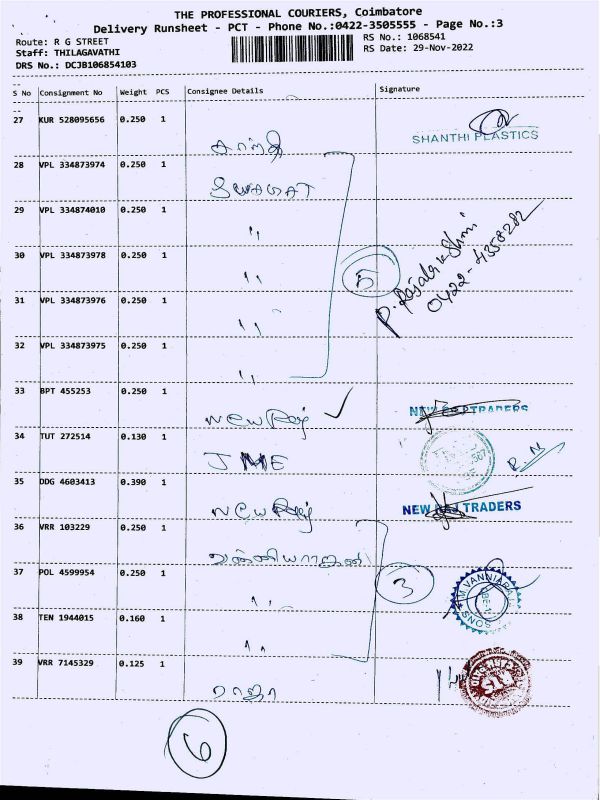 THE PROFESSIONAL COURIERS, Coimbatore
Delivery Runsheet - PCT - Phone No.:0422-3505555 - Page No.:3
Route: R G STREET
Staff: THILAGAVATHI
DRS No.: DCJB106854103
RS No.: 1068541
RS Date: 29-Nov-2022
S No Consignment No Weight PCS Consignee Details Signature
27 KUR 528095656 0.250 1
SHANTHI PLASTICS
28 VPL 334873974 0.250 1
29 VPL 334874010 0.250 1
,,
30 VPL 334873978 0.250 1
,,
5
P. Rajalakshmi
0422-4358282
31 VPL 334873976 0.250 1
,,
32 VPL 334873975 0.250 1
,,
33 BPT 455253 0.250 1
New Raj ✓
NEW RAJ TRADERS
34 TUT 272514 0.130 1
JME
35 DDG 4603413 0.390 1
New Raj
NEW RAJ TRADERS
36 VRR 103229 0.250 1
37 POL 4599954 0.250 1
,,
3
38 TEN 1944015 0.160 1
,,
39 VRR 7145329 0.125 1
ராஜா
6